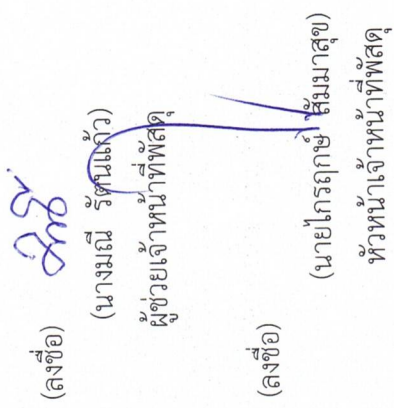 (ลงชื่อ)
(นางมณี รัตนแก้ว)
ผู้ช่วยเจ้าหน้าที่พัสดุ
(ลงชื่อ)
(นายไกรฤกษ์ สัมมาสุข)
หัวหน้าเจ้าหน้าที่พัสดุ